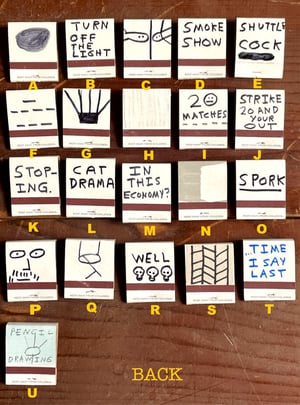 TURN
OFF
THE
LIGHT
SMOKE
SHOW
SHUTTLE
COCK
A
B
C
D
E
20
MATCHES
STRIKE
20 AND
YOUR
OUT
F
G
H
I
J
STOP-
ING.
CAT
DRAMA
IN
THIS
ECONOMY?
SPORK
K
L
M
N
O
WELL
...TIME
I SAY
LAST
P
Q
R
S
T
PENCIL
DRAWING
U
BACK